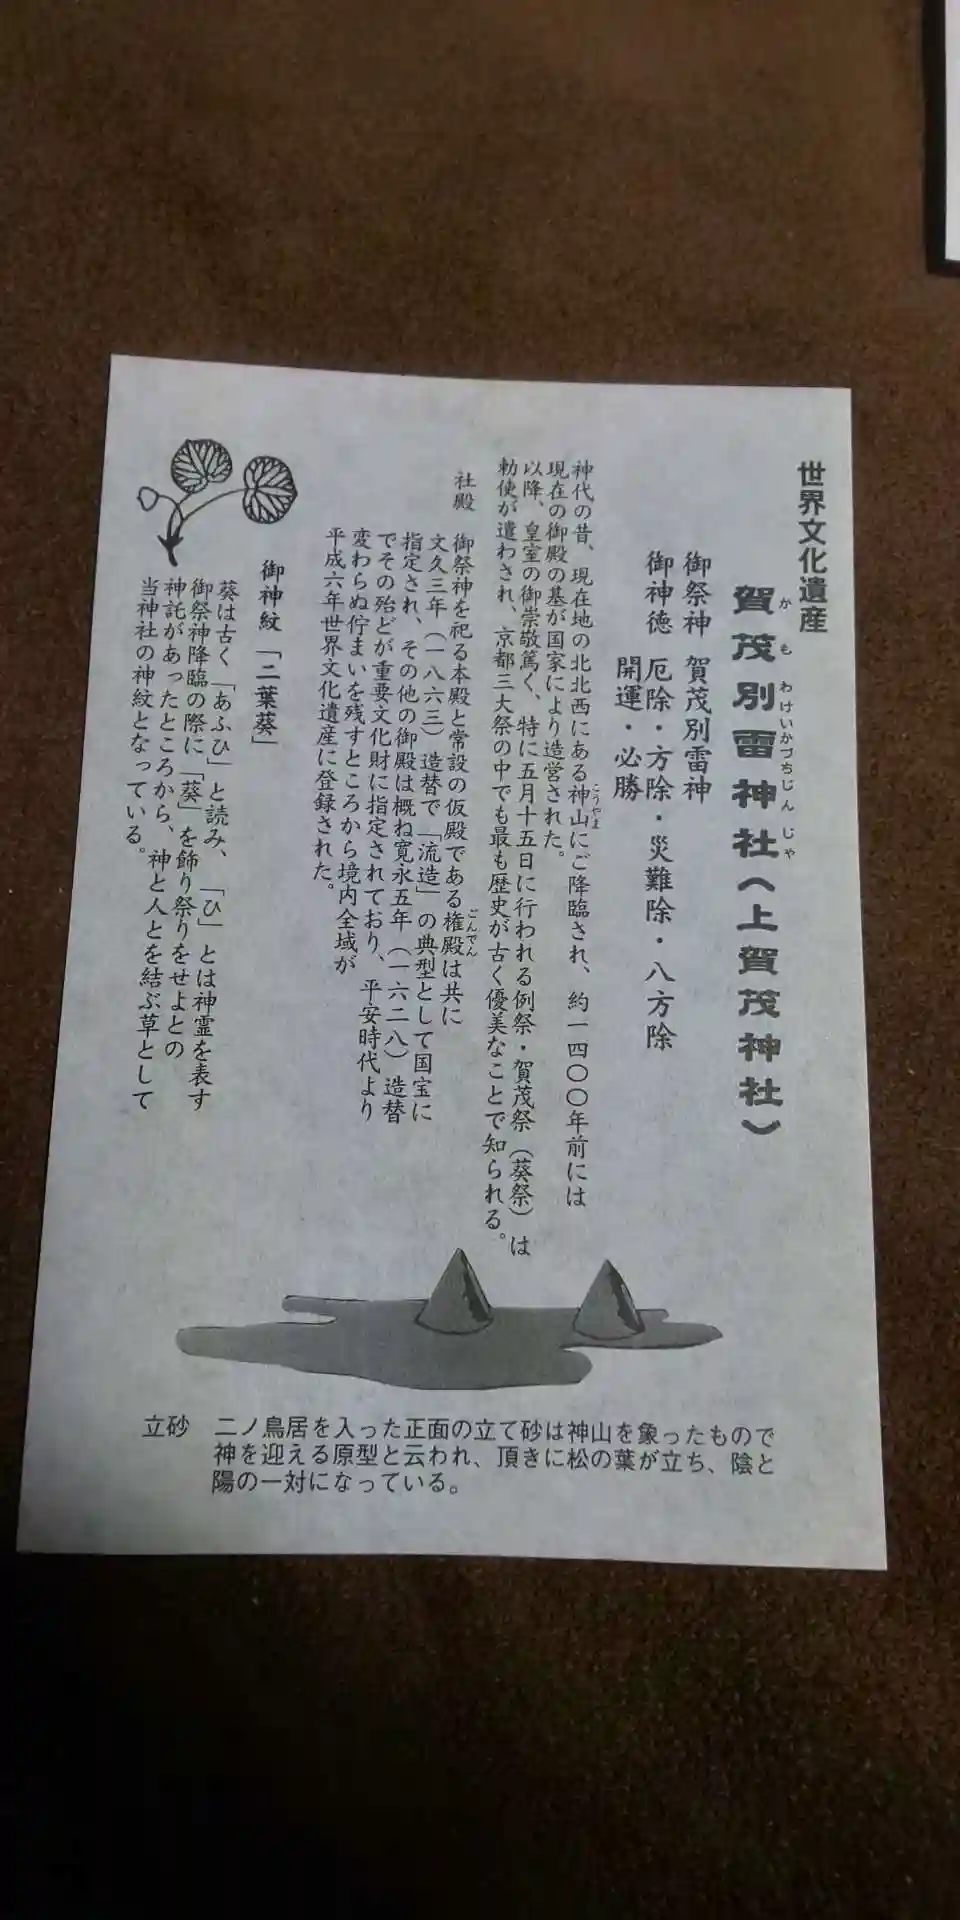 世界文化遺産
賀茂別雷神社(上賀茂神社)
かもわけいかづちじんじゃ
御祭神 賀茂別雷神
御神徳 厄除・方除・災難除・八方除
開運・必勝
神代の昔、現在地の北北西にある神山にご降臨され、約一四〇〇年前には
こうやま
現在の御殿の基が国家により造営された。
以降、皇室の御崇敬篤く、特に五月十五日に行われる例祭・賀茂祭(葵祭)は
勅使が遣わされ、京都三大祭の中でも最も歴史が古く優美なことで知られる。
社殿 御祭神を祀る本殿と常設の仮殿である権殿は共に
ごんでん
文久三年(一八六三)造替で「流造」の典型として国宝に
指定され、その他の御殿は概ね寛永五年(一六二八)造替
でその殆どが重要文化財に指定されており、平安時代より
変わらぬ佇まいを残すところから境内全域が
平成六年世界文化遺産に登録された。
御神紋「二葉葵」
葵は古く「あふひ」と読み、「ひ」とは神霊を表す
御祭神降臨の際に「葵」を飾り祭りをせよとの
神託があったところから、神と人とを結ぶ草として
当神社の神紋となっている。
立砂 二ノ鳥居を入った正面の立て砂は神山を象ったもので
神を迎える原型と云われ、頂きに松の葉が立ち、陰と
陽の一対になっている。